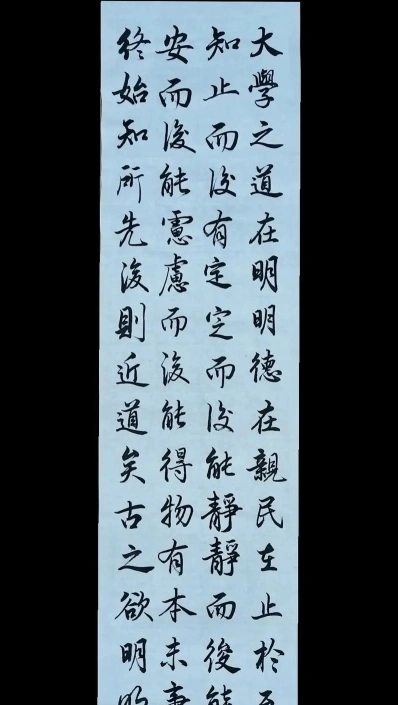 大學之道在明明德在親民在止於
知止而後有定定而後能靜靜而後能
安而後能慮慮而後能得物有本末事
終始知所先後則近道矣古之欲明明